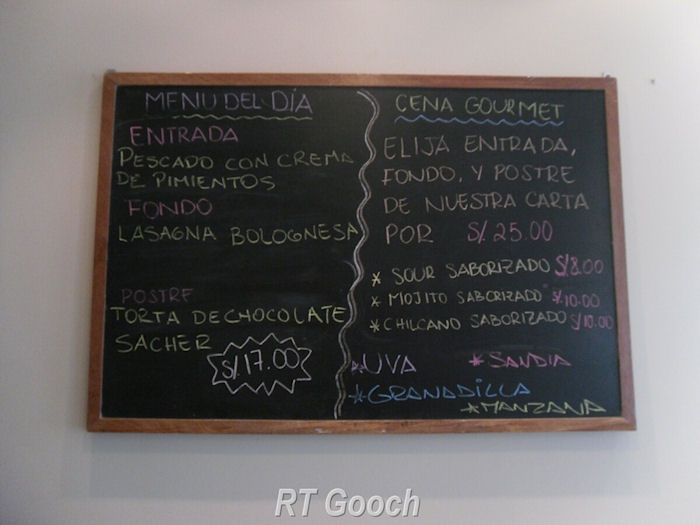 MENU DEL DÍA
ENTRADA
PESCADO CON CREMA
DE PIMIENTOS
FONDO
LASAGNA BOLOGNESA
POSTRE
TORTA DE CHOCOLATE
SACHER
S/. 17.00
CENA GOURMET
ELIJA ENTRADA,
FONDO, Y POSTRE
DE NUESTRA CARTA
POR S/. 25.00
* SOUR SABORIZADO S/8.00
* MOJITO SABORIZADO S/. 10.00
* CHILCANO SABORIZADO S/. 10.00
* UVA * SANDIA
* GRANADILLA
* MANZANA
RT Gooch